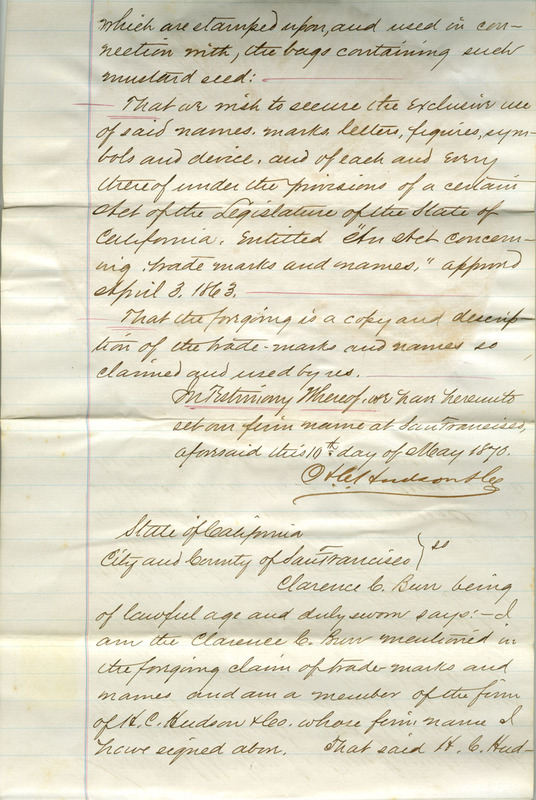 which are stamped upon, and used in con-
nection with, the bags containing such
mustard seed:
That we wish to secure the exclusive use
of said names, marks, letters, figures, sym-
bols and device, and of each and every
thereof under the provisions of a certain
Act of the Legislature of the State of
California, Entitled "An Act concern-
ing trade marks and names," approved
April 3, 1863.
That the forgoing is a copy and descrip-
tion of the trade-marks and names so
claimed and used by us.
In Testimony Whereof, we have hereunto
set our firm name at San Francisco,
aforesaid this 10th day of May 1870.
H. C. Hudson & Co
State of California
City and County of San Francisco } ss
Clarence C. Burr being
of lawful age and duly sworn says:- I
am the Clarence C. Burr mentioned in
the forgoing claim of trade-marks and
names and am a member of the firm
of H. C. Hudson & Co. whose firm name I
have signed above. That said H. C. Hud-